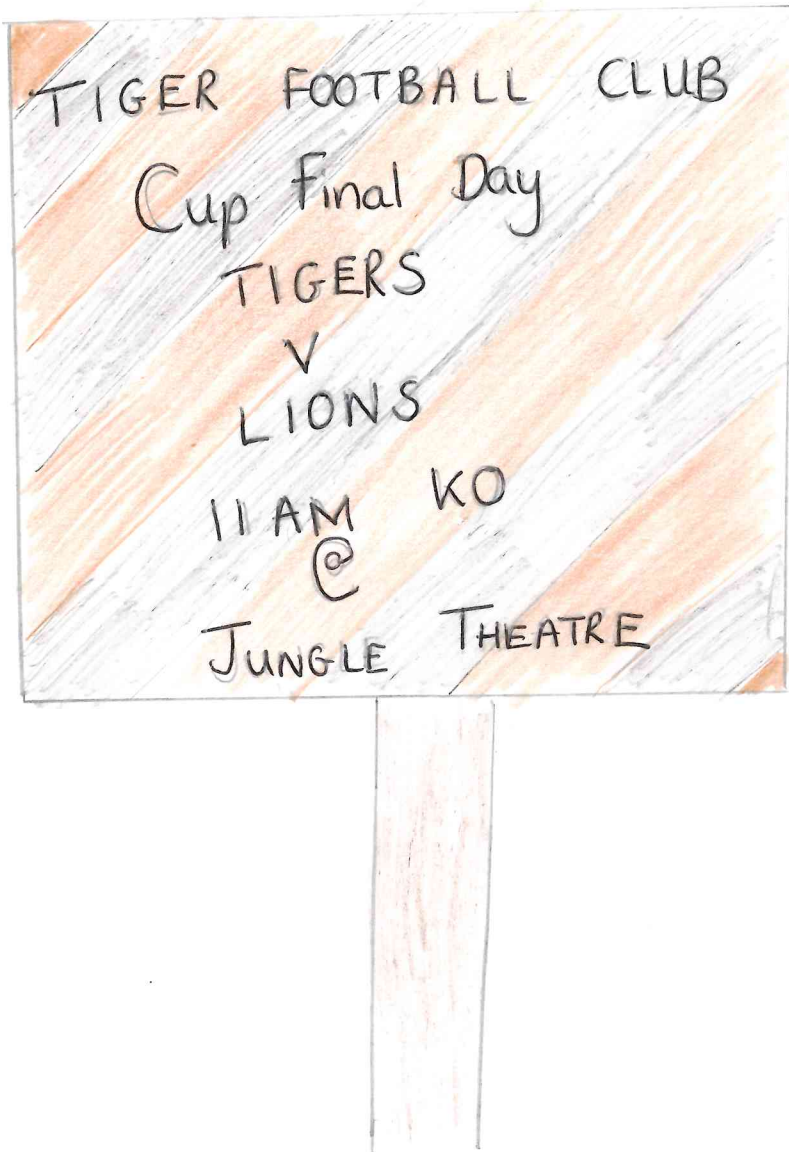 TIGER FOOTBALL CLUB
Cup Final Day
TIGERS
V
LIONS
11AM KO
@
JUNGLE THEATRE